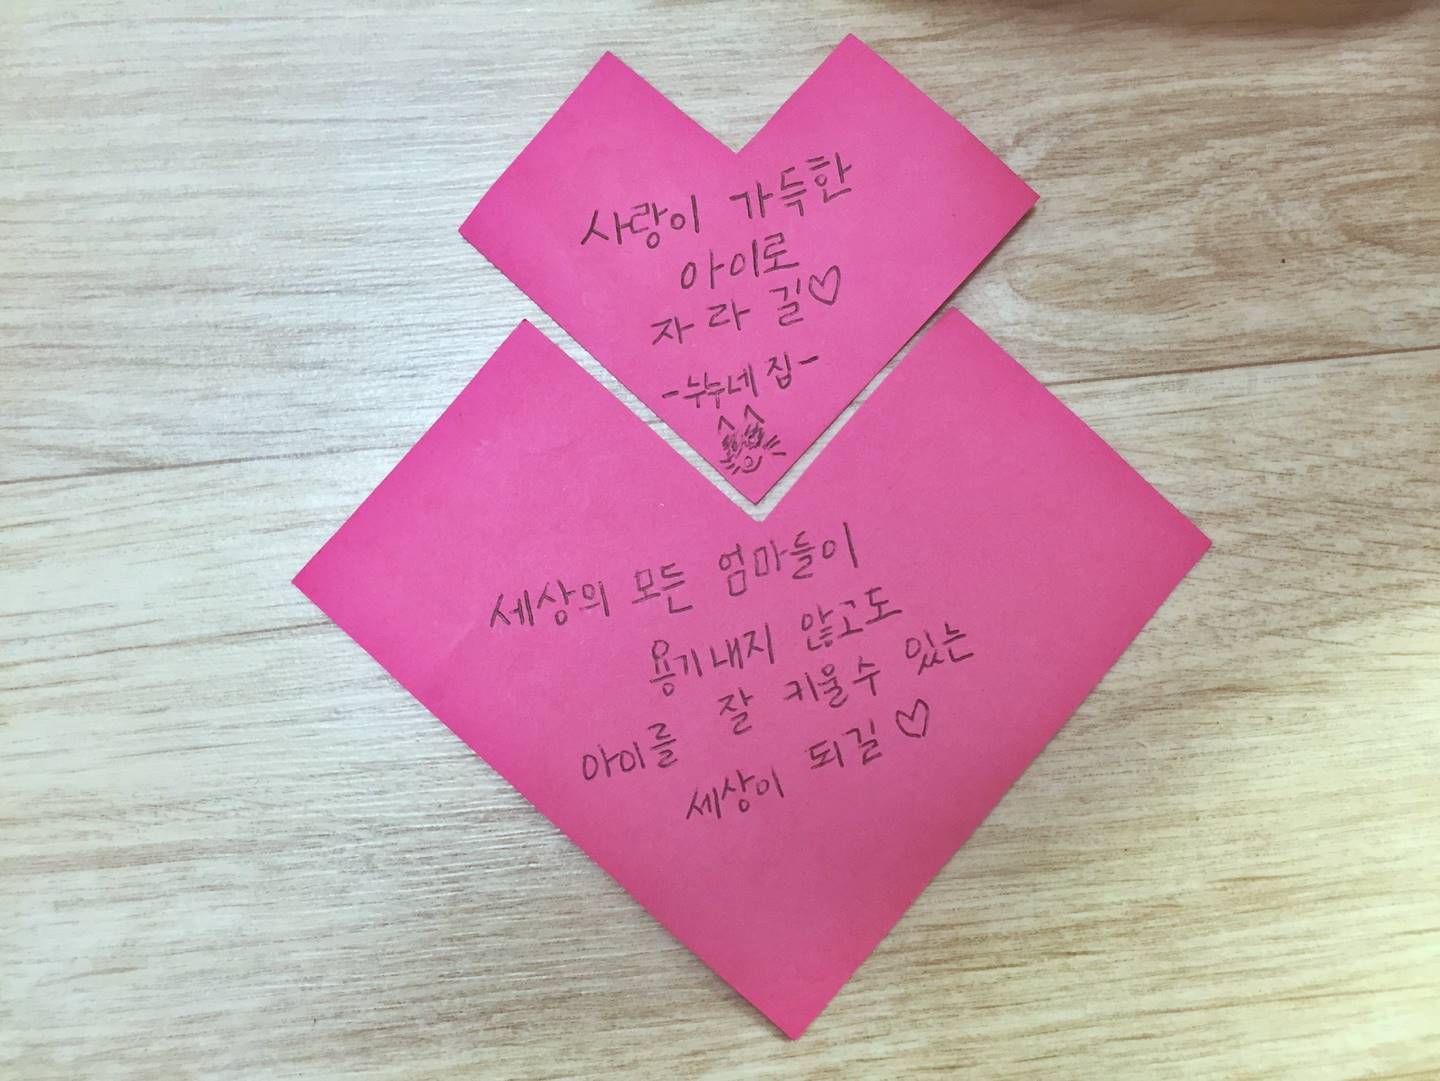 사랑이 가득한
아이로
자라길♡
-누누네 집-
세상의 모든 엄마들이
용기내지 않고도
아이를 잘 키울수 있는
세상이 되길♡